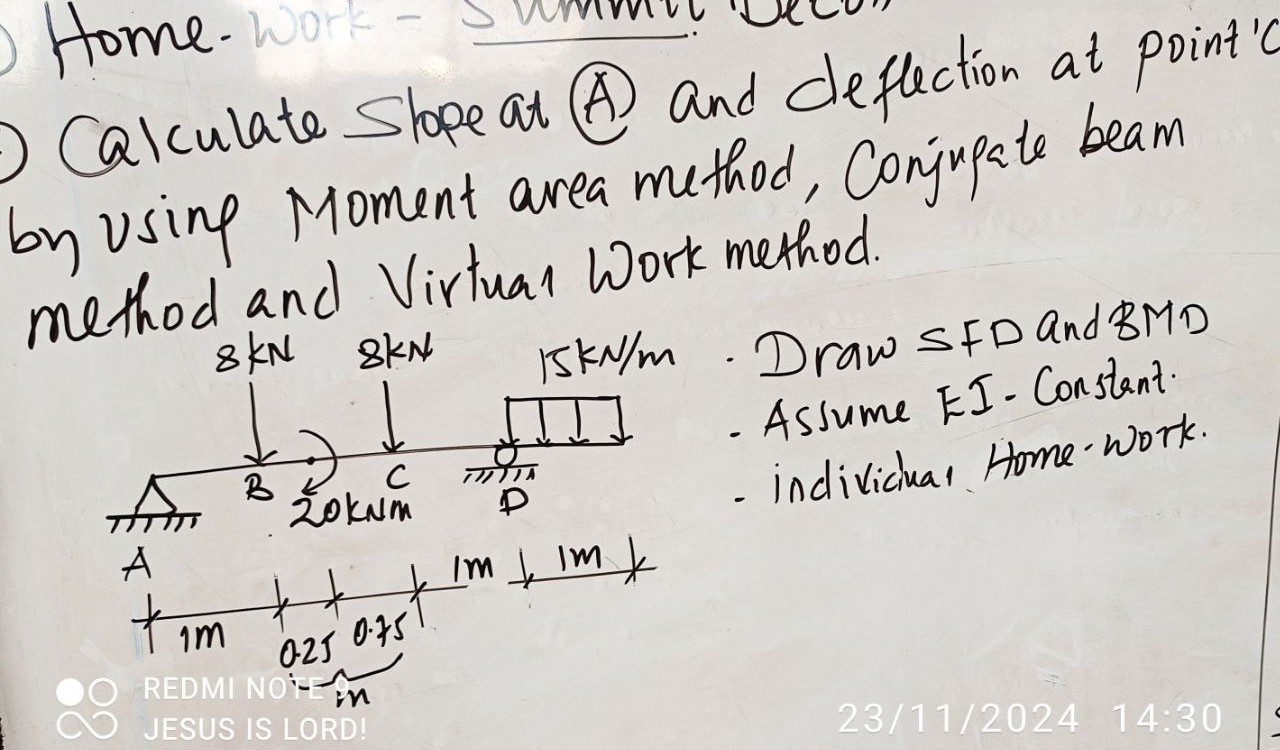 Home-Work - Summit
Calculate Slope at A and deflection at point 'C
by using Moment area method, Conjugate beam
method and Virtual Work method.
8kN 8kN 15kN/m
. Draw SFD and BMD
- Assume EI - Constant.
- individual Home-Work.
B C D
20kNm
A
1m 0.25 0.75 1m 1m
m
REDMI NOTE 9
JESUS IS LORD!
23/11/2024 14:30